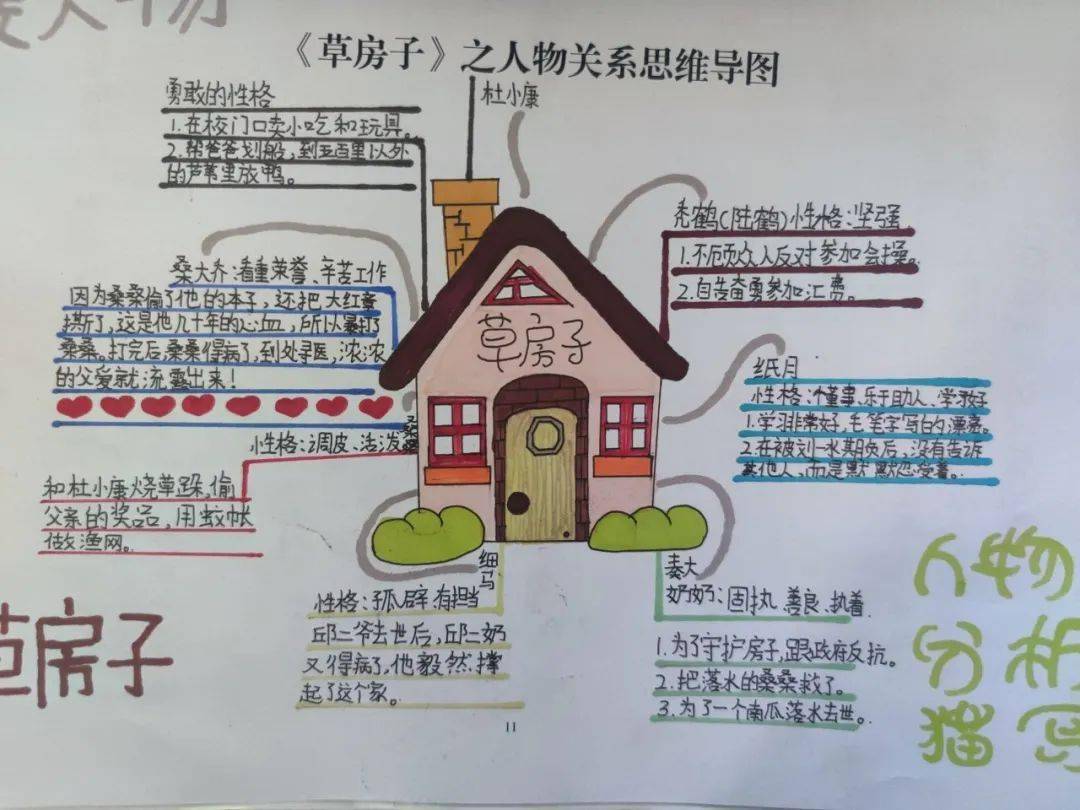 人物
《草房子》之人物关系思维导图
杜小康
勇敢的性格
1.在校门口卖小吃和玩具。
2.帮爸爸划船,到五百里以外
的芦苇里放鸭。
秃鹤(陆鹤)性格:坚强
1.不顾众人反对参加会操。
2.自告奋勇参加汇费。
桑大乔:看重荣誉、辛苦工作
因为桑桑偷了他的本子,还把大红
撕了,这是他几十年的心血,所以暴打了
桑桑。打完后,桑桑得病了,到处寻医,浓浓
的父爱就流露出来!
草房子
纸月
性格:懂事、乐于助人、学习好
1.学习非常好,毛笔字写的漂亮。
2.在被刘一水期负后,没有告诉
其他人,而是默默忍受着。
桑桑
性格:调皮、活泼
和杜小康烧草垛,偷
父亲的奖品,用蚊帐
做渔网。
细马
性格:孤辟、有担当
邱二爷去世后,邱二奶
又得病了,他毅然撑
起了这个家。
秦大
奶奶:固执、善良、执着
1.为了守护房子,跟政府反抗。
2.把落水的桑桑救了。
3.为了一个南瓜落水去世。
草房子
人物
分析
描写
11